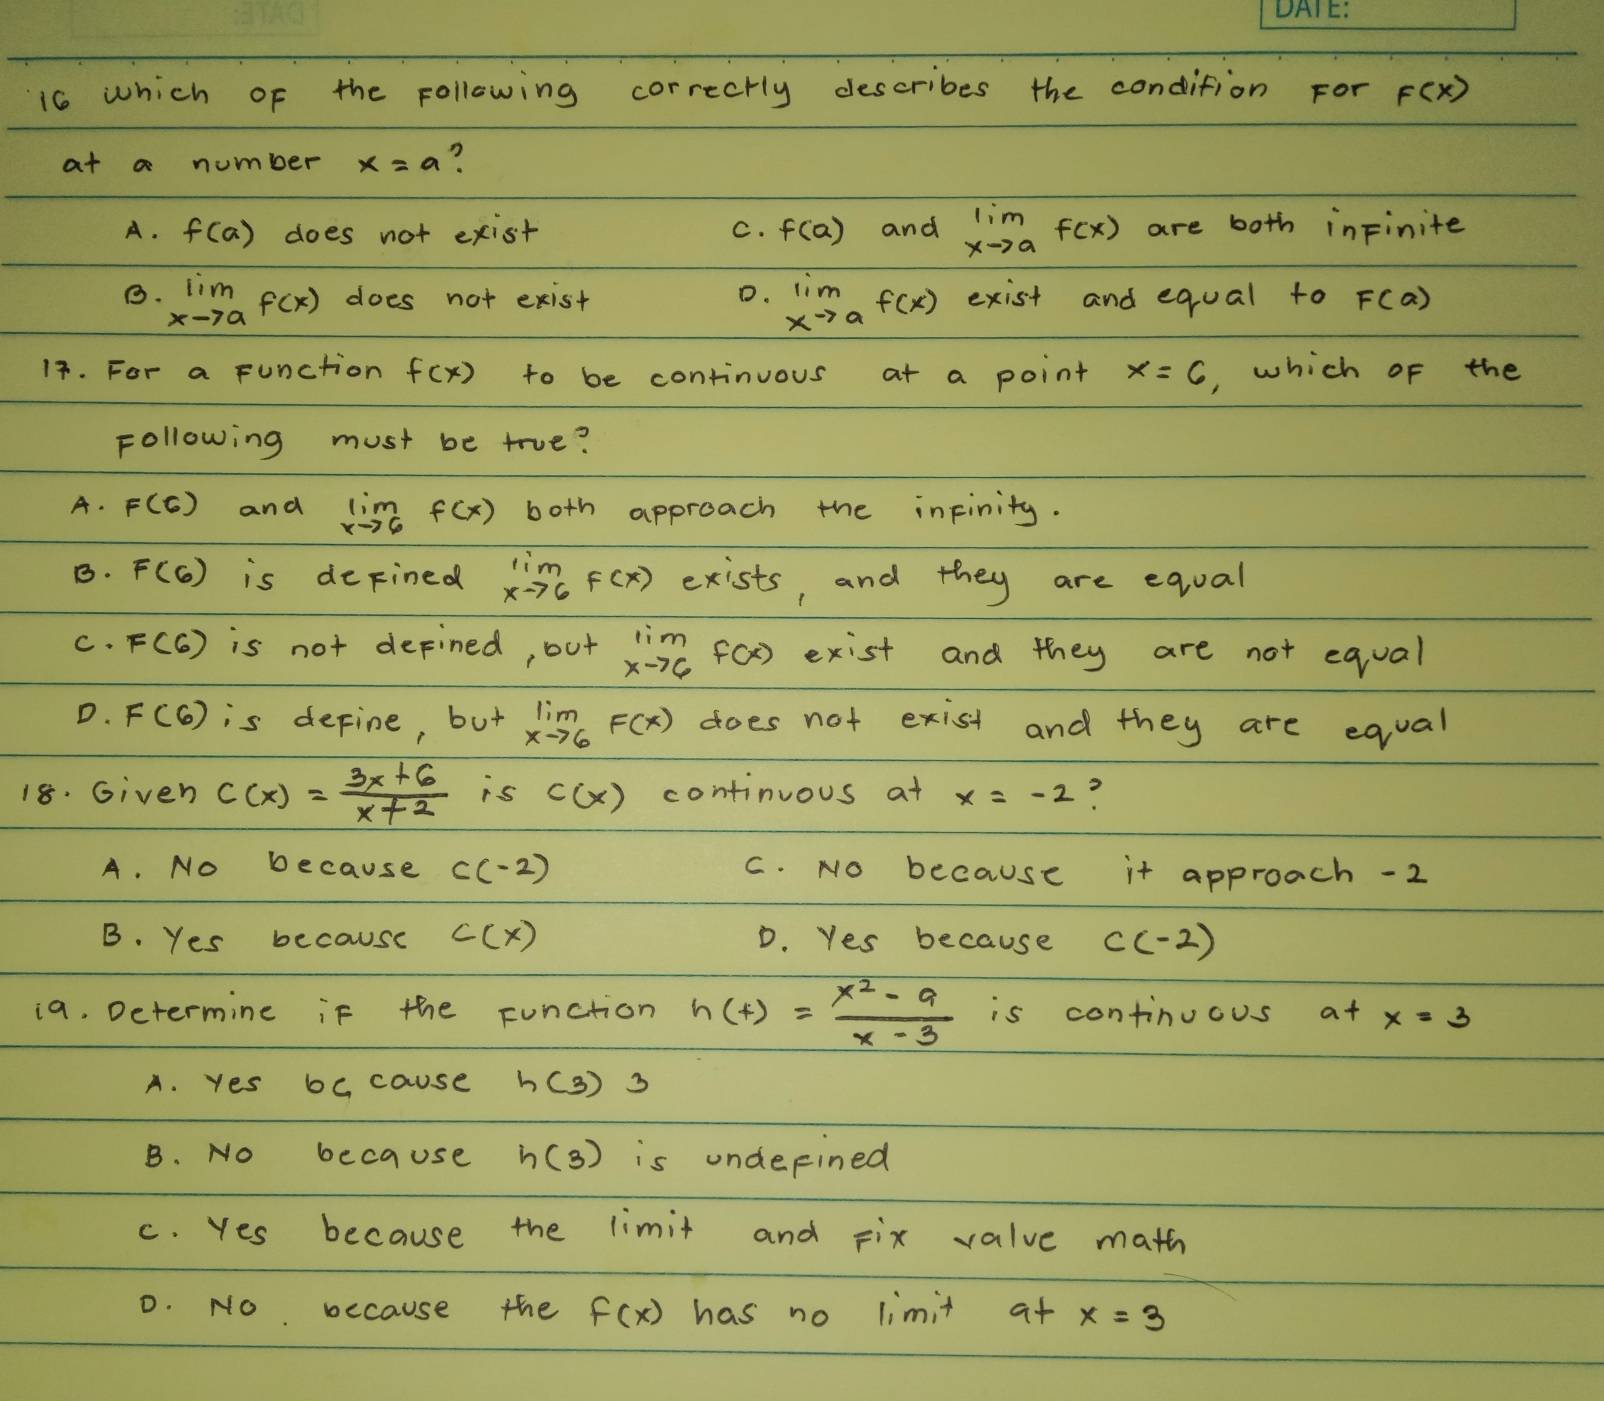 DATE:
16 which of the following correctly describes the condition for f(x)
at a number x = a?
A. f(a) does not exist C. f(a) and lim x→a f(x) are both infinite
B. lim x→a f(x) does not exist D. lim x→a f(x) exist and equal to F(a)
17. For a function f(x) to be continuous at a point x = 6, which of the
following must be true?
A. F(6) and lim x→6 f(x) both approach the infinity.
B. F(6) is defined lim x→6 F(x) exists, and they are equal
C. F(6) is not defined, but lim x→6 f(x) exist and they are not equal
D. F(6) is define, but lim x→6 F(x) does not exist and they are equal
18. Given C(x) = 3x+6 / x+2 is C(x) continuous at x = -2?
A. No because C(-2) C. No because it approach -2
B. Yes because C(x) D. Yes because C(-2)
19. Determine if the function h(t) = x² - 9 / x - 3 is continuous at x = 3
A. Yes because h(3) 3
B. No because h(3) is undefined
C. Yes because the limit and fix value math
D. No. because the f(x) has no limit at x = 3